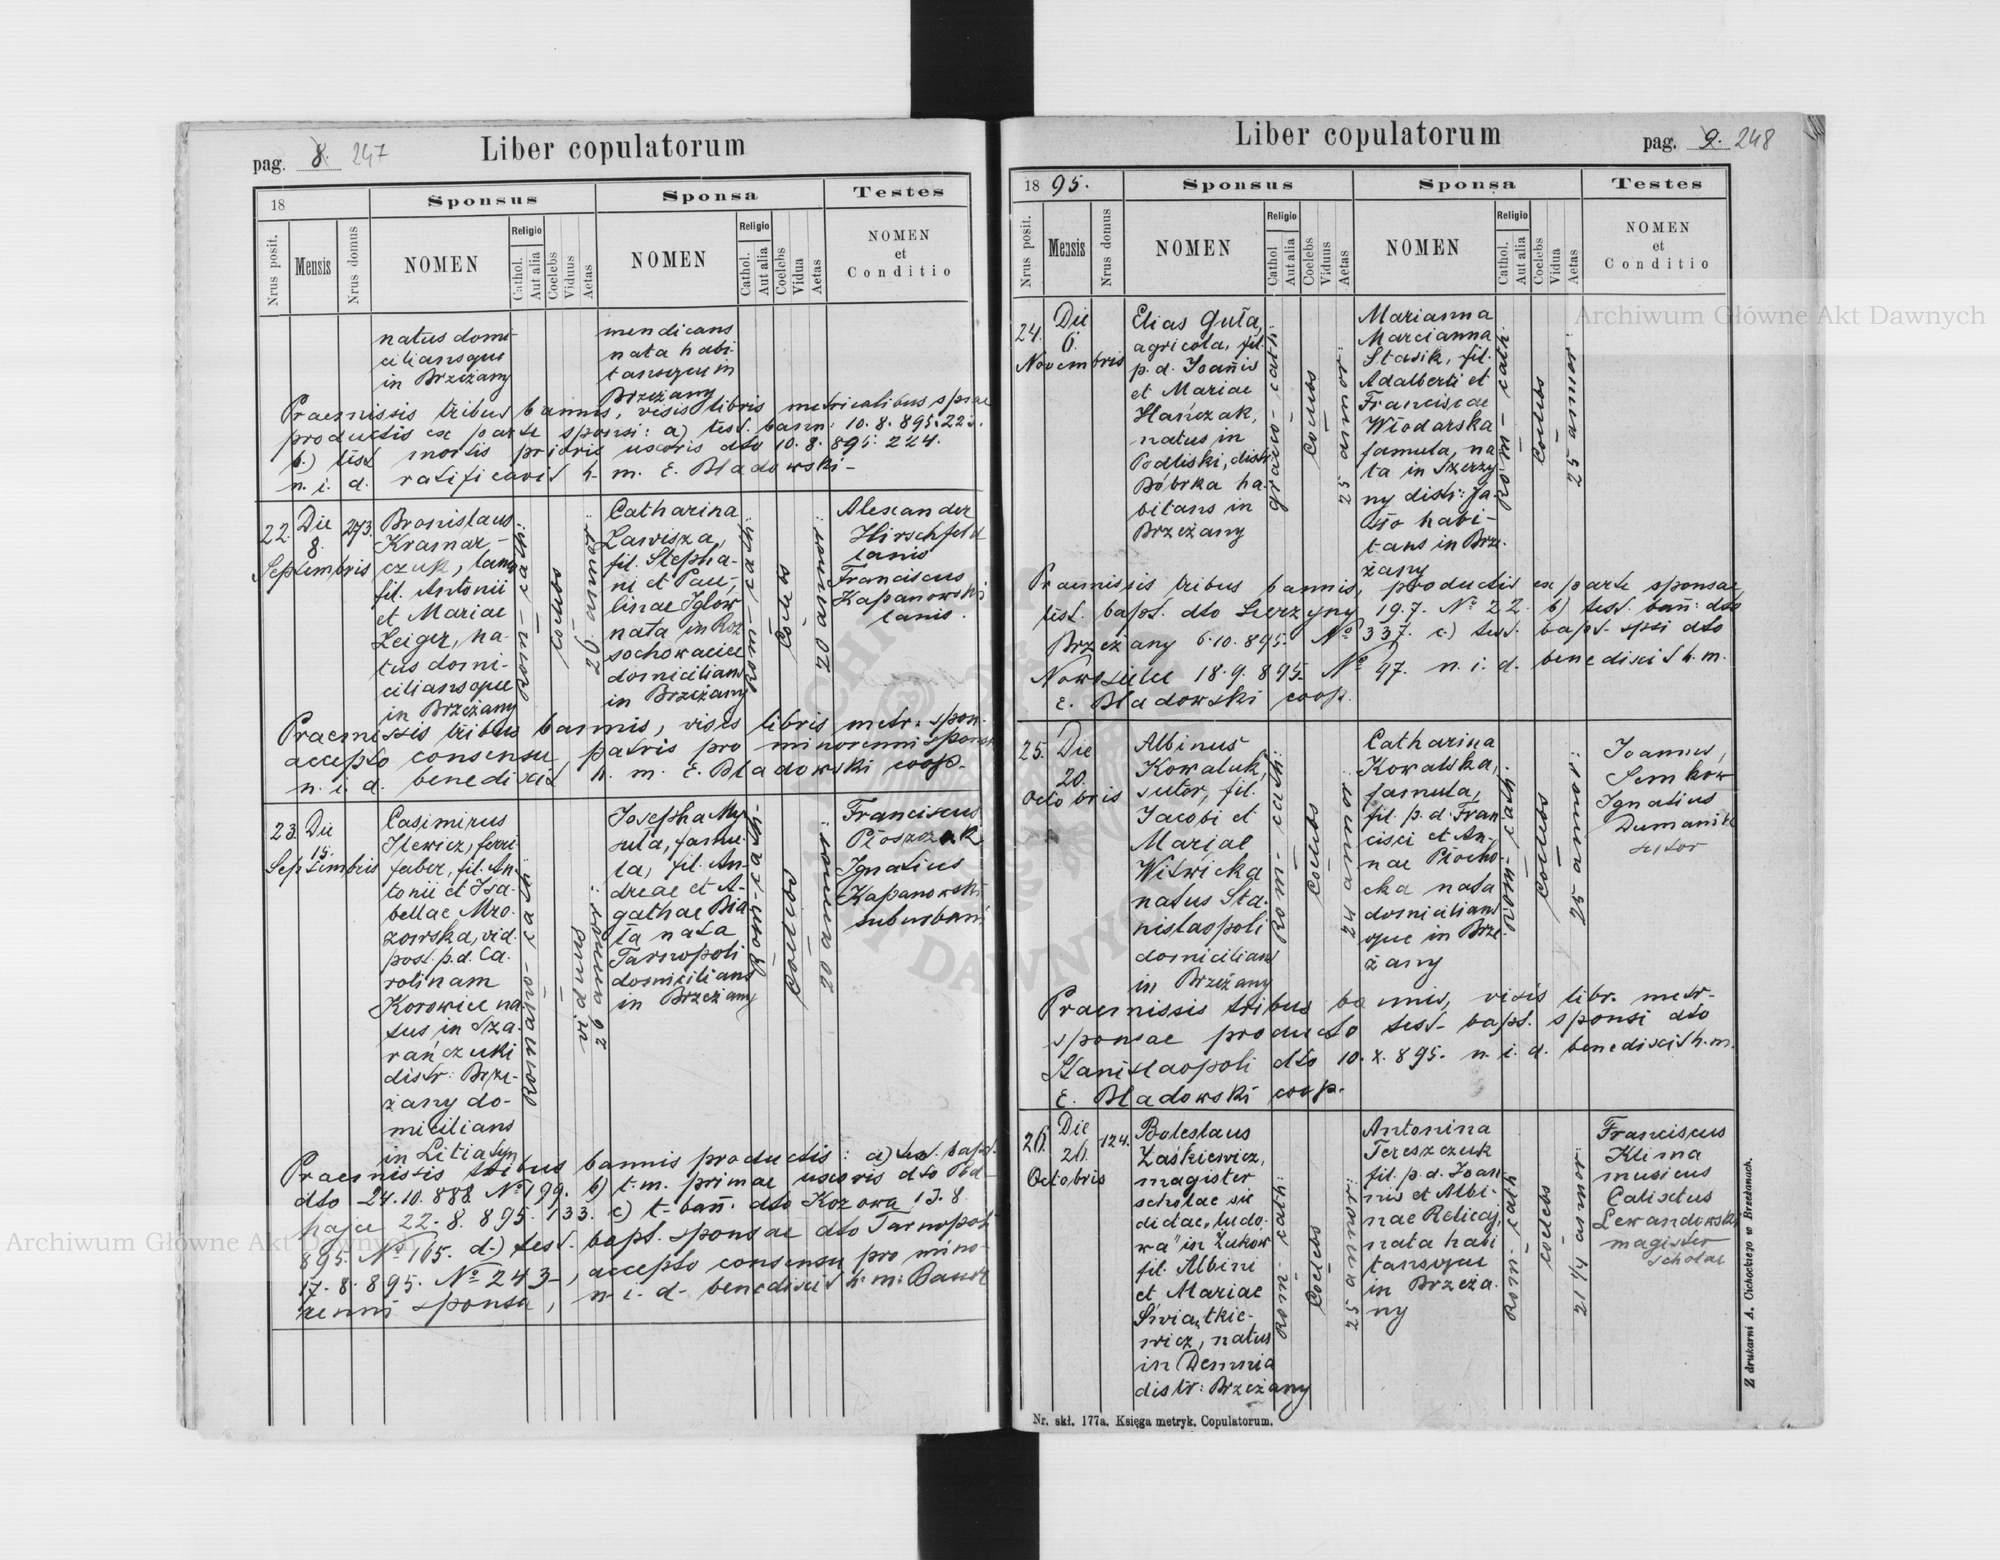 pag. 8. 247
Liber copulatorum
18
Sponsus
Sponsa
Testes
Nrus posit.
Mensis
Nrus domus
NOMEN
Religio
Cathol.
Aut alia
Coelebs
Viduus
Aetas
NOMEN
Religio
Cathol.
Aut alia
Coelebs
Vidua
Aetas
NOMEN
et
Conditio
natus domi-
ciliansque
in Brzeżany
mendicans
nata habi-
tansque in
Brzeżany
Praemissis tribus bannis, visis libris metricalibus spsae
productis ex parte sponsi: a) test. bann: 10.8.895.
b.) test mortis prioris uxoris dto 10.8.895. 224.
n. i. d. ratificavit h. m. E. Bładowski-
22.
Die
8.
Septembris
273.
Bronislaus
Kramar-
czuk, lanio
fil. Antonii
et Mariae
Zeiger, na-
tus domi-
ciliansque
in Brzeżany
Rom - cath:
Coelebs
26 annor:
Catharina
Zawisza,
fil. Stepha-
ni et Pau-
linae Iglow
nata in Roz
sochowaciec
domicilians
in Brzeżany
Rom - cath:
Coelebs
20 annor:
Alexander
Hirschfeld
lanio
Franciscus
Kapanowski
lanio.
Praemissis tribus bannis, visis libris metr. spon.
accepto consensu patris pro minorenni sponsa
n. i. d. benedixit h. m. E. Bładowski coop.
23.
Die
15.
Septembris
Casimirus
Ilewicz, ferri-
faber, fil. An-
tonii et Isa-
bellae Mro-
zowska, vid.
post. p.d. Ca-
rolinam
Korowiec na-
tus in Sza-
rańczuki
distr: Brze-
żany do-
micilians
in Litiatyn
Romano - cath:
viduus
26 annor:
Josepha My-
suta, famu-
la, fil. An-
dreae et A-
gathae Bia-
ła nata
Tarnopoli
domicilians
in Brzeżany
Rom: cath-
Coelebs
20 annor:
Franciscus
Płoszczak
Ignatius
Kapanowski
suburbani
Praemissis tribus bannis productis: a) test. bapt.
dto 24.10.888 No 199. b) t. m. primae uxoris dto Pod-
hajce 22.8.895. 133. c) t- bann. dto Kozowa 13.8.
895. No 165. d.) test. bapt. sponsae dto Tarnopoli
17.8.895. No 243-, accepto consensu pro mino-
renni sponsa, n. i. d. benedixit h. m:
pag. 9. 248
Liber copulatorum
1895.
Sponsus
Sponsa
Testes
Nrus posit.
Mensis
Nrus domus
NOMEN
Religio
Cathol.
Aut alia
Coelebs
Viduus
Aetas
NOMEN
Religio
Cathol.
Aut alia
Coelebs
Vidua
Aetas
NOMEN
et
Conditio
24.
Die
6.
Novembris
Elias Guła,
agricola, fil.
p. d. Joannis
et Mariae
Hańczak,
natus in
Podliski, distr:
Bóbrka ha-
bitans in
Brzeżany
graeco - cath:
Coelebs
25 annor:
Marianna
Marcianna
Stasik, fil.
Adalberti et
Franciscae
Włodarska
famula, na-
ta in Szerzy
ny distr: Ja-
sło habi-
tans in Brze-
żany
Rom - cath
Coelebs
25 annor:
Praemissis tribus bannis, productis ex parte sponsae,
test. bapt. dto Szerzyny 19.7. No 22. b) test. bann: dto
Brzeżany 6.10.895. No 337. c.) test. bapt. spsi dto
Nowsielce 18.9.895. No 97. n. i. d. benedixit h. m.
E. Bładowski coop.
25.
Die
20.
Octobris
Albinus
Kowaluk,
sutor, fil.
Jacobi et
Mariae
Witwicka
natus Sta-
nislaopoli
domicilians
in Brzeżany
Rom - cath:
Coelebs
24 annor:
Catharina
Kowalska,
famula,
fil. p. d. Fran-
cisci et An-
nae Płocho-
cka nata
domicilians
que in Brze-
żany
Rom: cath.
Coelebs
25 annor:
Joannes,
Semkow
Ignatius
Dumanik
sutor
Praemissis tribus bannis, visis libr. metr-
sponsae producto test- bapt. sponsi dto
Stanislaopoli dto 10.X.895. n. i. d. benedixit h. m.
E. Bładowski coop.
26.
Die
26.
Octobris
124.
Boleslaus
Zaśkiewicz,
magister
scholae sic
dictae „ludo-
wa" in Żukow
fil. Albini
et Mariae
Świątkie-
wicz, natus
in Demnia
distr: Brzeżany
Rom - cath:
Coelebs
25 annor:
Antonina
Tereszczuk
fil. p. d. Joan-
nis et Albi-
nae Relicaj,
nata habi
tansque
in Brzeża-
ny
Rom - cath
coelebs
21 1/4 annor:
Franciscus
Klima
musicus
Calixtus
Lewandowski
magister
scholae
Nr. skł. 177a. Księga metryk. Copulatorum.
Z drukarni A. Cichockiego w Brzeżanach.
Archiwum Główne Akt Dawnych
Archiwum Główne Akt Dawnych